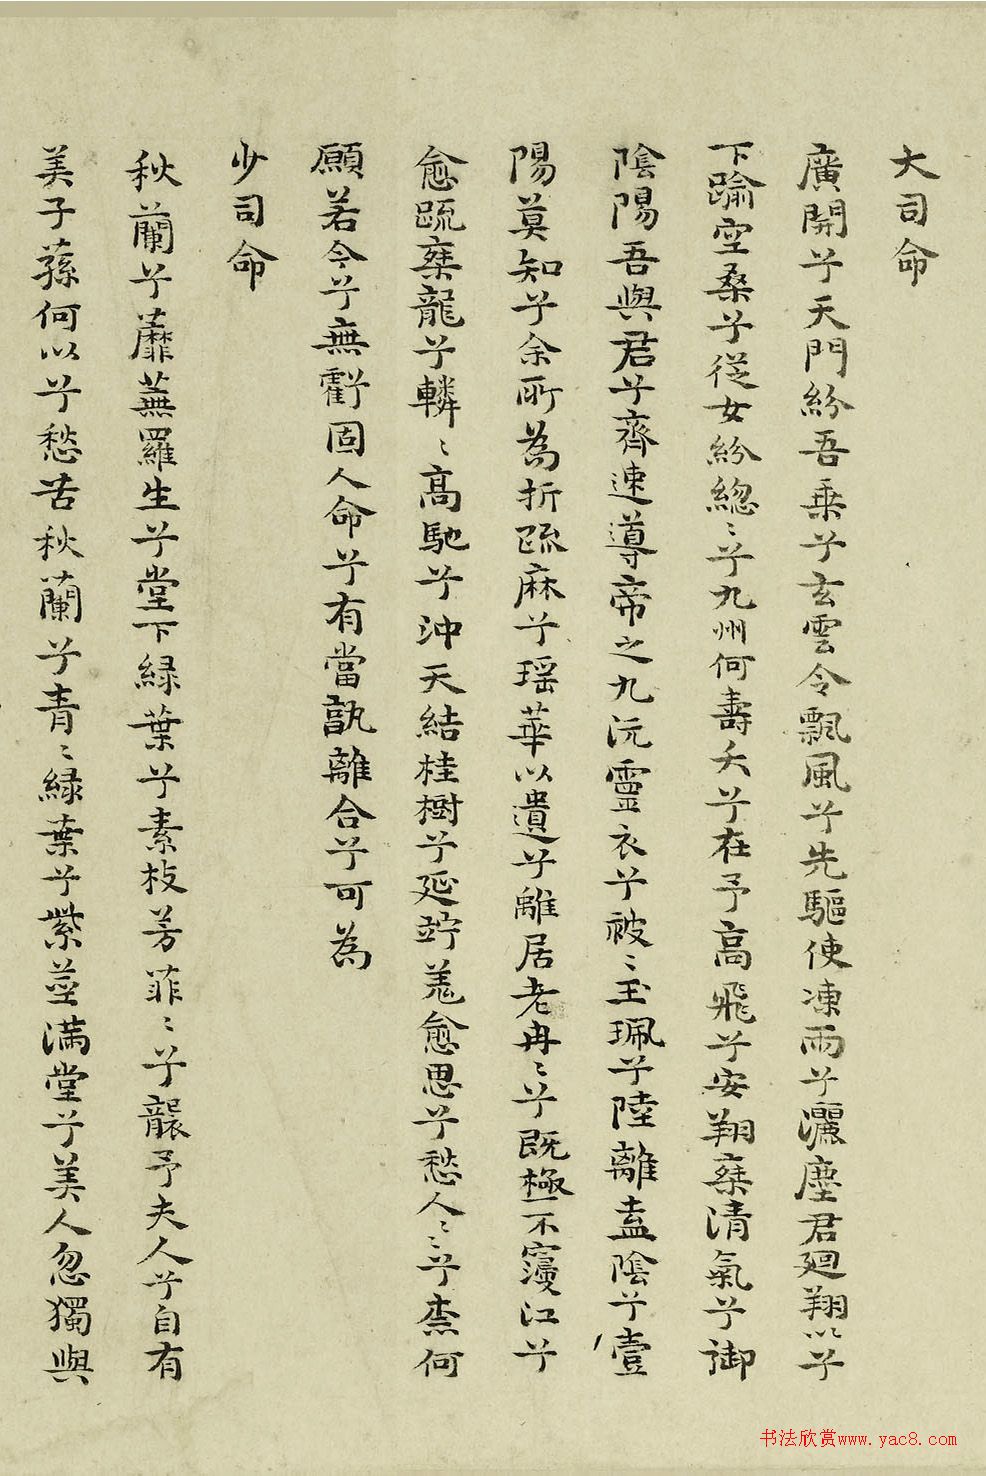 大司命
廣開兮天門紛吾乗兮玄雲令飄風兮先驅使凍雨兮灑塵君廻翔以兮
下踰空桑兮從女紛緫〻兮九州何壽夭兮在予高飛兮安翔椉清氣兮御
陰陽吾與君兮齊速導帝之九沆靈衣兮被〻玉珮兮陸離壹陰兮壹
陽莫知兮余所為折疏麻兮瑶華以遺兮離居老冉〻兮既極不寖江兮
愈疏椉龍兮轔〻高馳兮沖天結桂樹兮延竚羌愈思兮愁人〻〻兮柰何
願若今兮無虧固人命兮有當孰離合兮可為
少司命
秋蘭兮蘼蕪羅生兮堂下緑葉兮素枝芳菲〻兮襲予夫人兮自有
美子蓀何以兮愁苦秋蘭兮青〻緑葉兮紫莖滿堂兮美人忽獨與
书法欣赏www.yac8.com